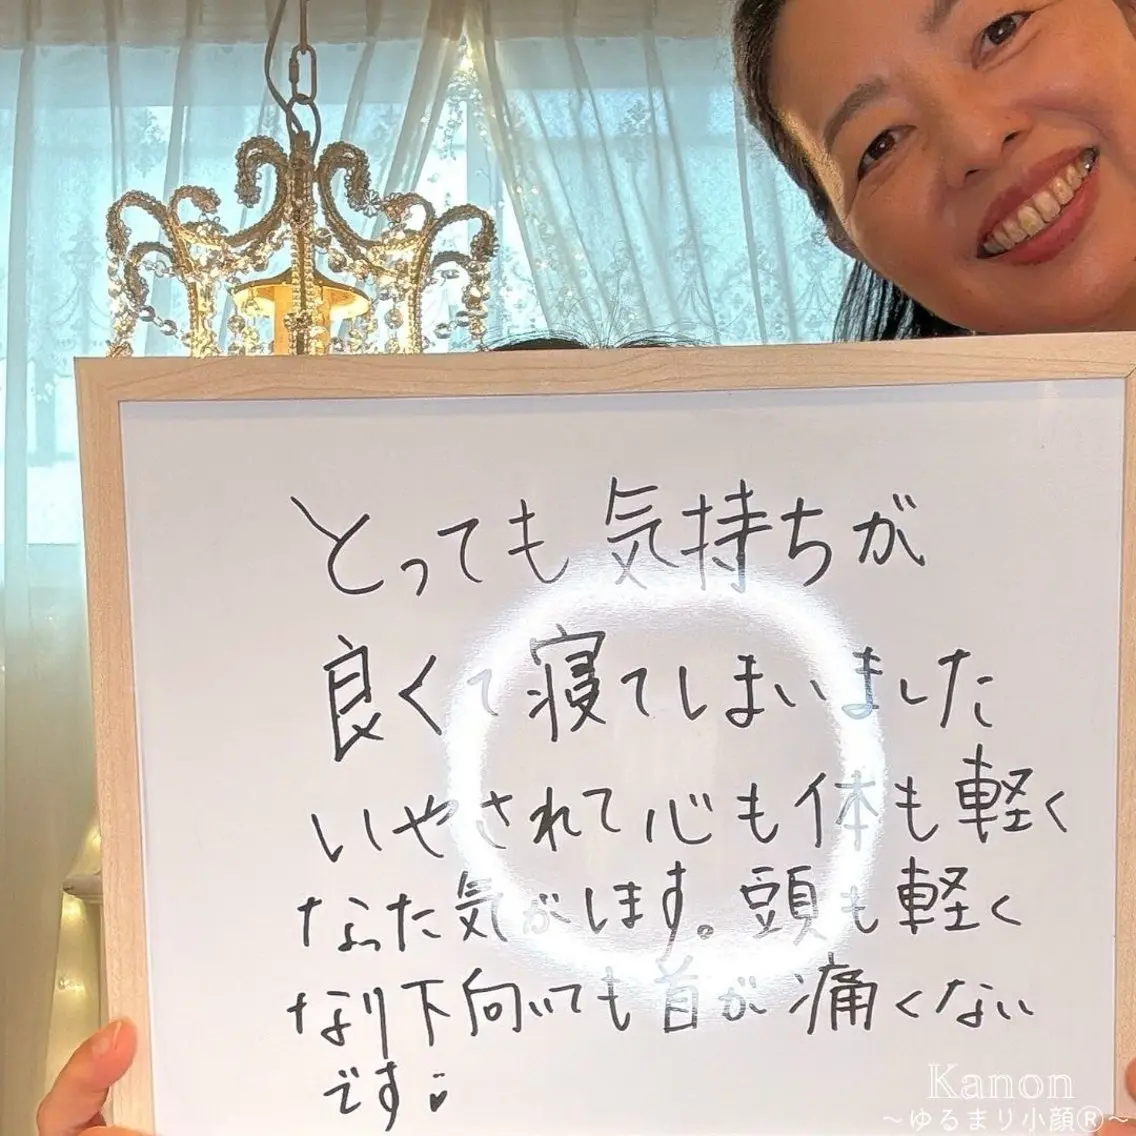 とっても気持ちが
良くて寝てしまいました
いやされて心も体も軽く
なった気がします。頭も軽く
なり下向いても首が痛くない
です♥
Kanon
〜ゆるまり小顔®〜